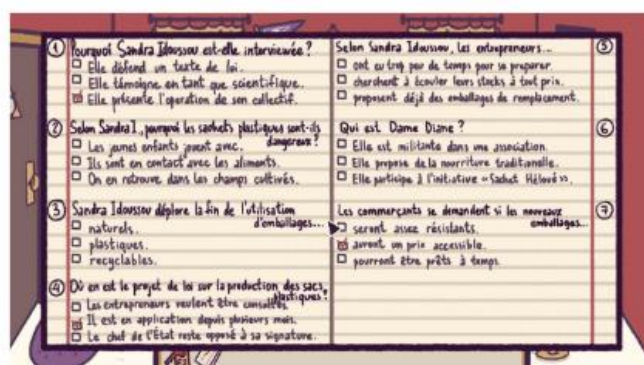 ① Pourquoi Sandra Idoussou est-elle interviewée ?
Elle défend un texte de loi.
Elle témoigne en tant que scientifique.
Elle présente l'operation de son collectif.
② Selon Sandra I., pourquoi les sachets plastiques sont-ils
dangereux ?
Les jeunes enfants jouent avec.
Ils sont en contact avec les aliments.
On en retrouve dans les champs cultivés.
③ Sandra Idoussou déplore la fin de l'utilisation
d'emballages...
naturels.
plastiques.
recyclables.
④ Où en est le projet de loi sur la production des sacs
plastiques ?
Les entrepreneurs veulent être consultés.
Il est en application depuis plusieurs mois.
Le chef de l'État reste opposé à sa signature.
Selon Sandra Idoussou, les entrepreneurs... ⑤
ont eu trop peu de temps pour se préparer.
cherchent à écouler leurs stocks à tout prix.
proposent déjà des emballages de remplacement.
Qui est Dame Diane ? ⑥
Elle est militante dans une association.
Elle propose de la nourriture traditionnelle.
Elle participe à l'initiative «Sachet Héloué».
Les commerçants se demandent si les nouveaux ⑦
emballages...
seront assez résistants.
auront un prix accessible.
pourront être prêts à temps.